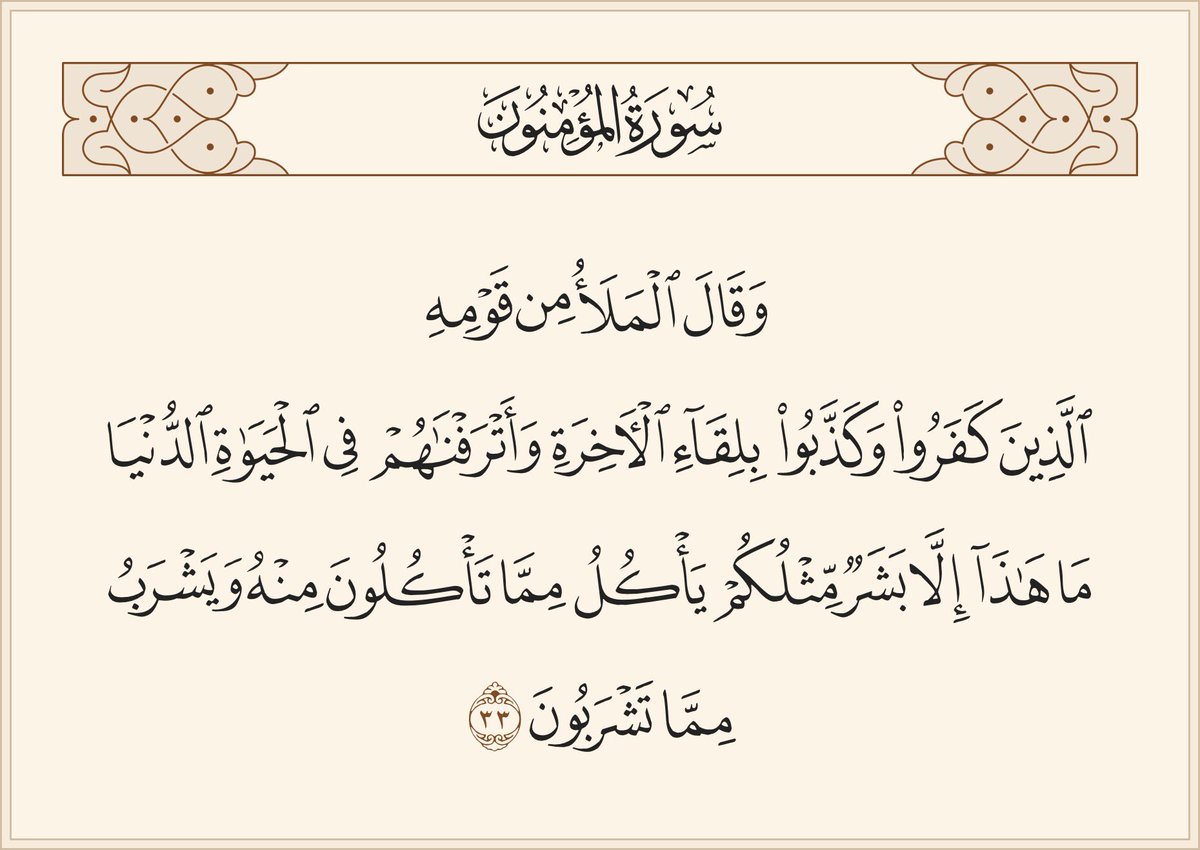 سُورَةُ المُؤۡمِنُونَ
وَقَالَ ٱلۡمَلَأُ مِن قَوۡمِهِ
ٱلَّذِينَ كَفَرُواْ وَكَذَّبُواْ بِلِقَآءِ ٱلۡأٓخِرَةِ وَأَتۡرَفۡنَٰهُمۡ فِي ٱلۡحَيَوٰةِ ٱلدُّنۡيَا
مَا هَٰذَآ إِلَّا بَشَرٞ مِّثۡلُكُمۡ يَأۡكُلُ مِمَّا تَأۡكُلُونَ مِنۡهُ وَيَشۡرَبُ
مِمَّا تَشۡرَبُونَ ٣٣